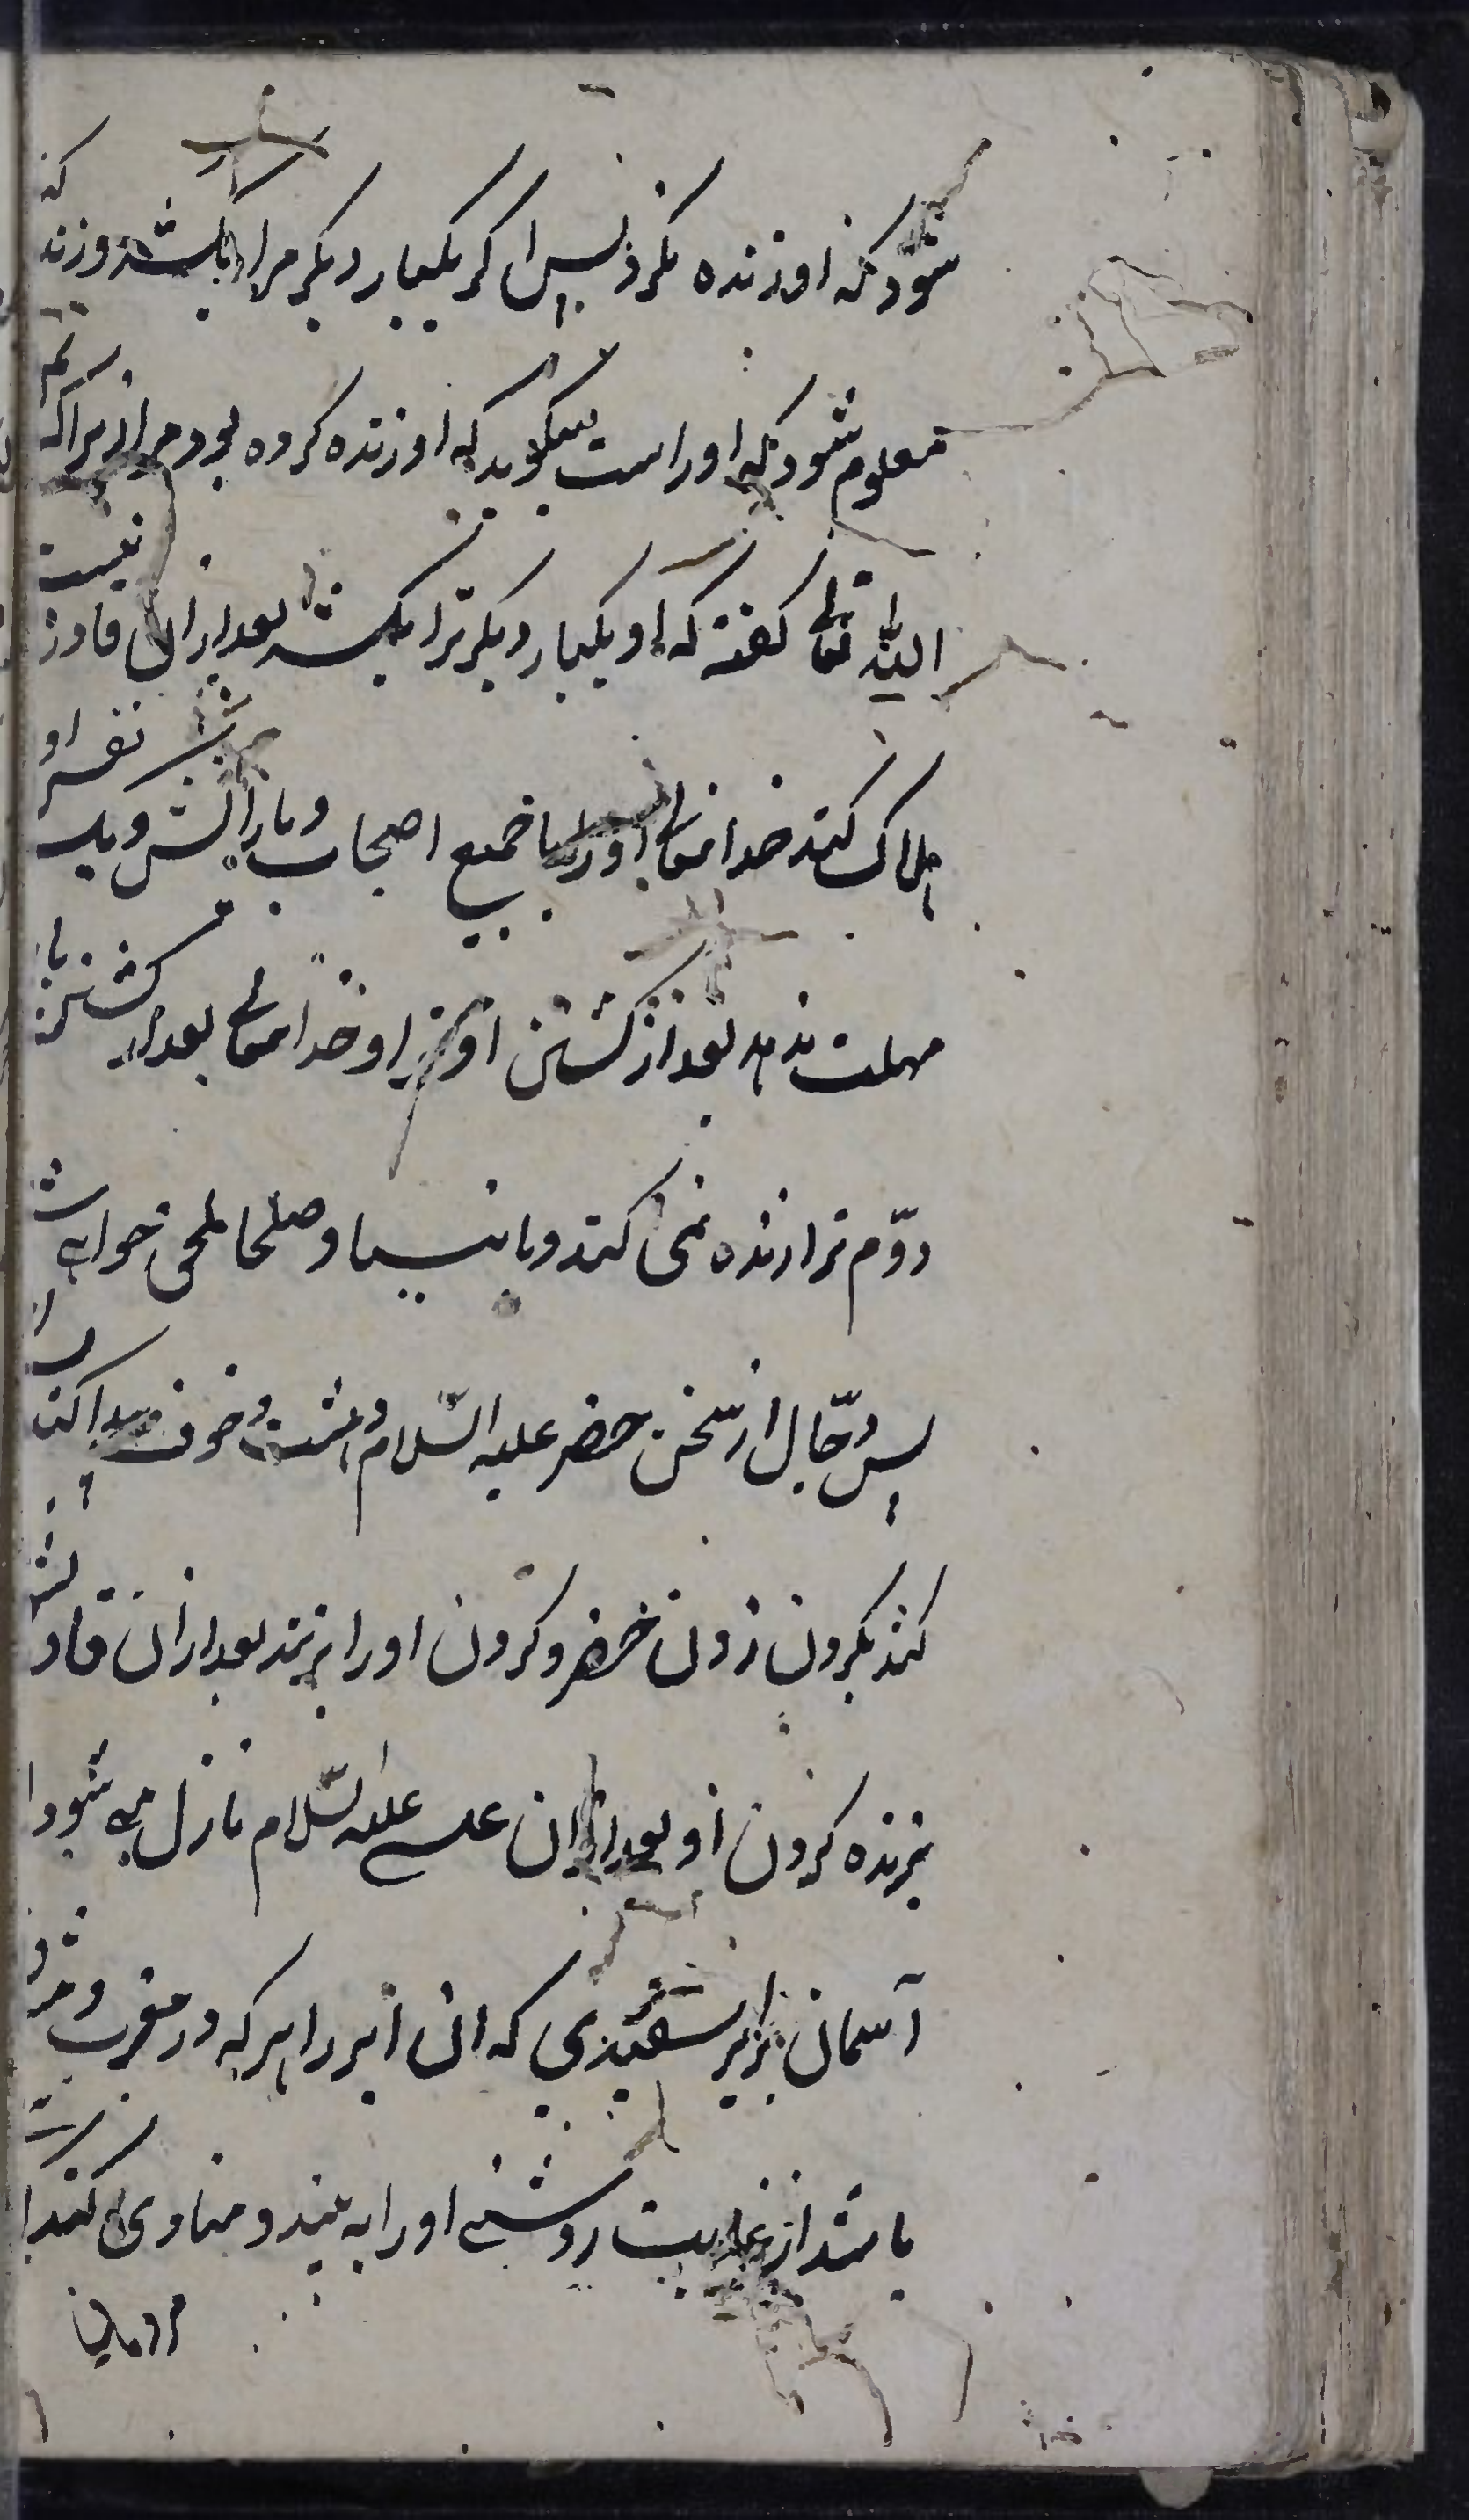 شود که او زنده نکرد پس اگر یکبار دیگر مرا بکشد و زنده کند
معلوم شود که او راست میگوید که او زنده کرده بود مرا زیراکه
الله تعالی گفته که او یکبار دیگر ترا بکشد بعد از آن قادر نیست
هلاک کند خدا تعالی او را با جمیع اصحاب و یارانش و یک نفر او
مهلت ندهد بعد از کشتن او ترا و خدا تعالی بعد از کشتن بار
دوّم ترا زنده نمی کند و بانبیا و صلحا ملحق خواهی شد
پس دجّال از سخن خضر علیه السّلام دهشت و خوف پیدا کند
کند بگردن زدن خضر و گردن او را بزند بعد از آن قادر نشود
بزنده کردن او بعد از ان عیسی علیه السّلام نازل می شود از
آسمان بزیر سفیدی که ان ابر را هر که در مغرب و مشرق
باشد از غایت روشنی او را به بیند و منادی کند
مردمان